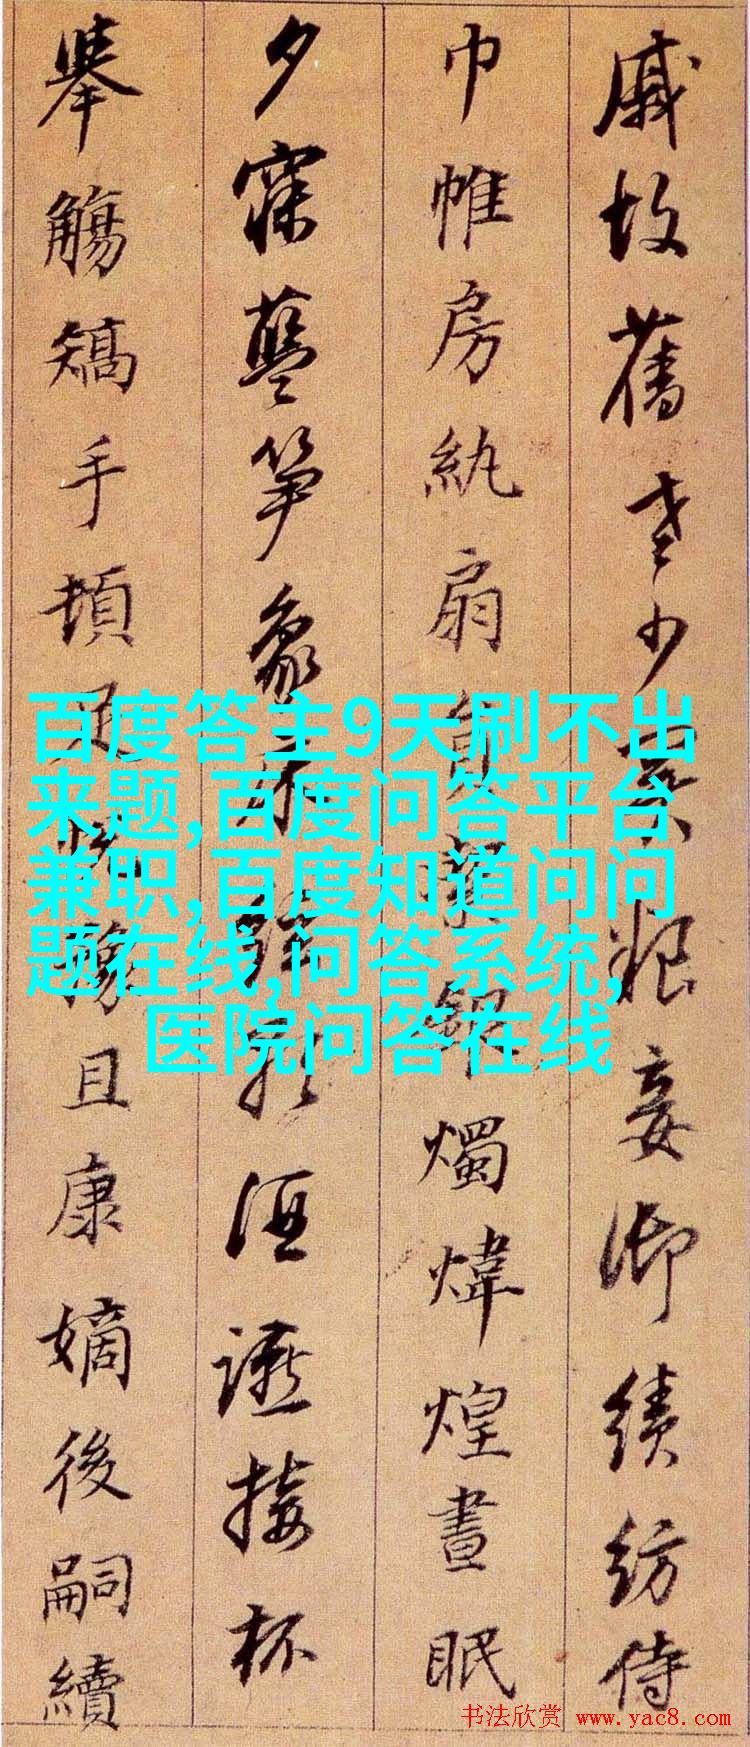 戚故舊老少異粮妾御績紡侍
巾帷房紈扇員潔銀燭煒煌晝眠
夕寐藍笋象床絃歌酒讌接杯
舉觴矯手頓足悅豫且康嫡後嗣續
百度答主9天刷不出
来题,百度问答平台
兼职,百度知道问问
题在线,问答系统,
医院问答在线
书法欣赏 www.yac8.com